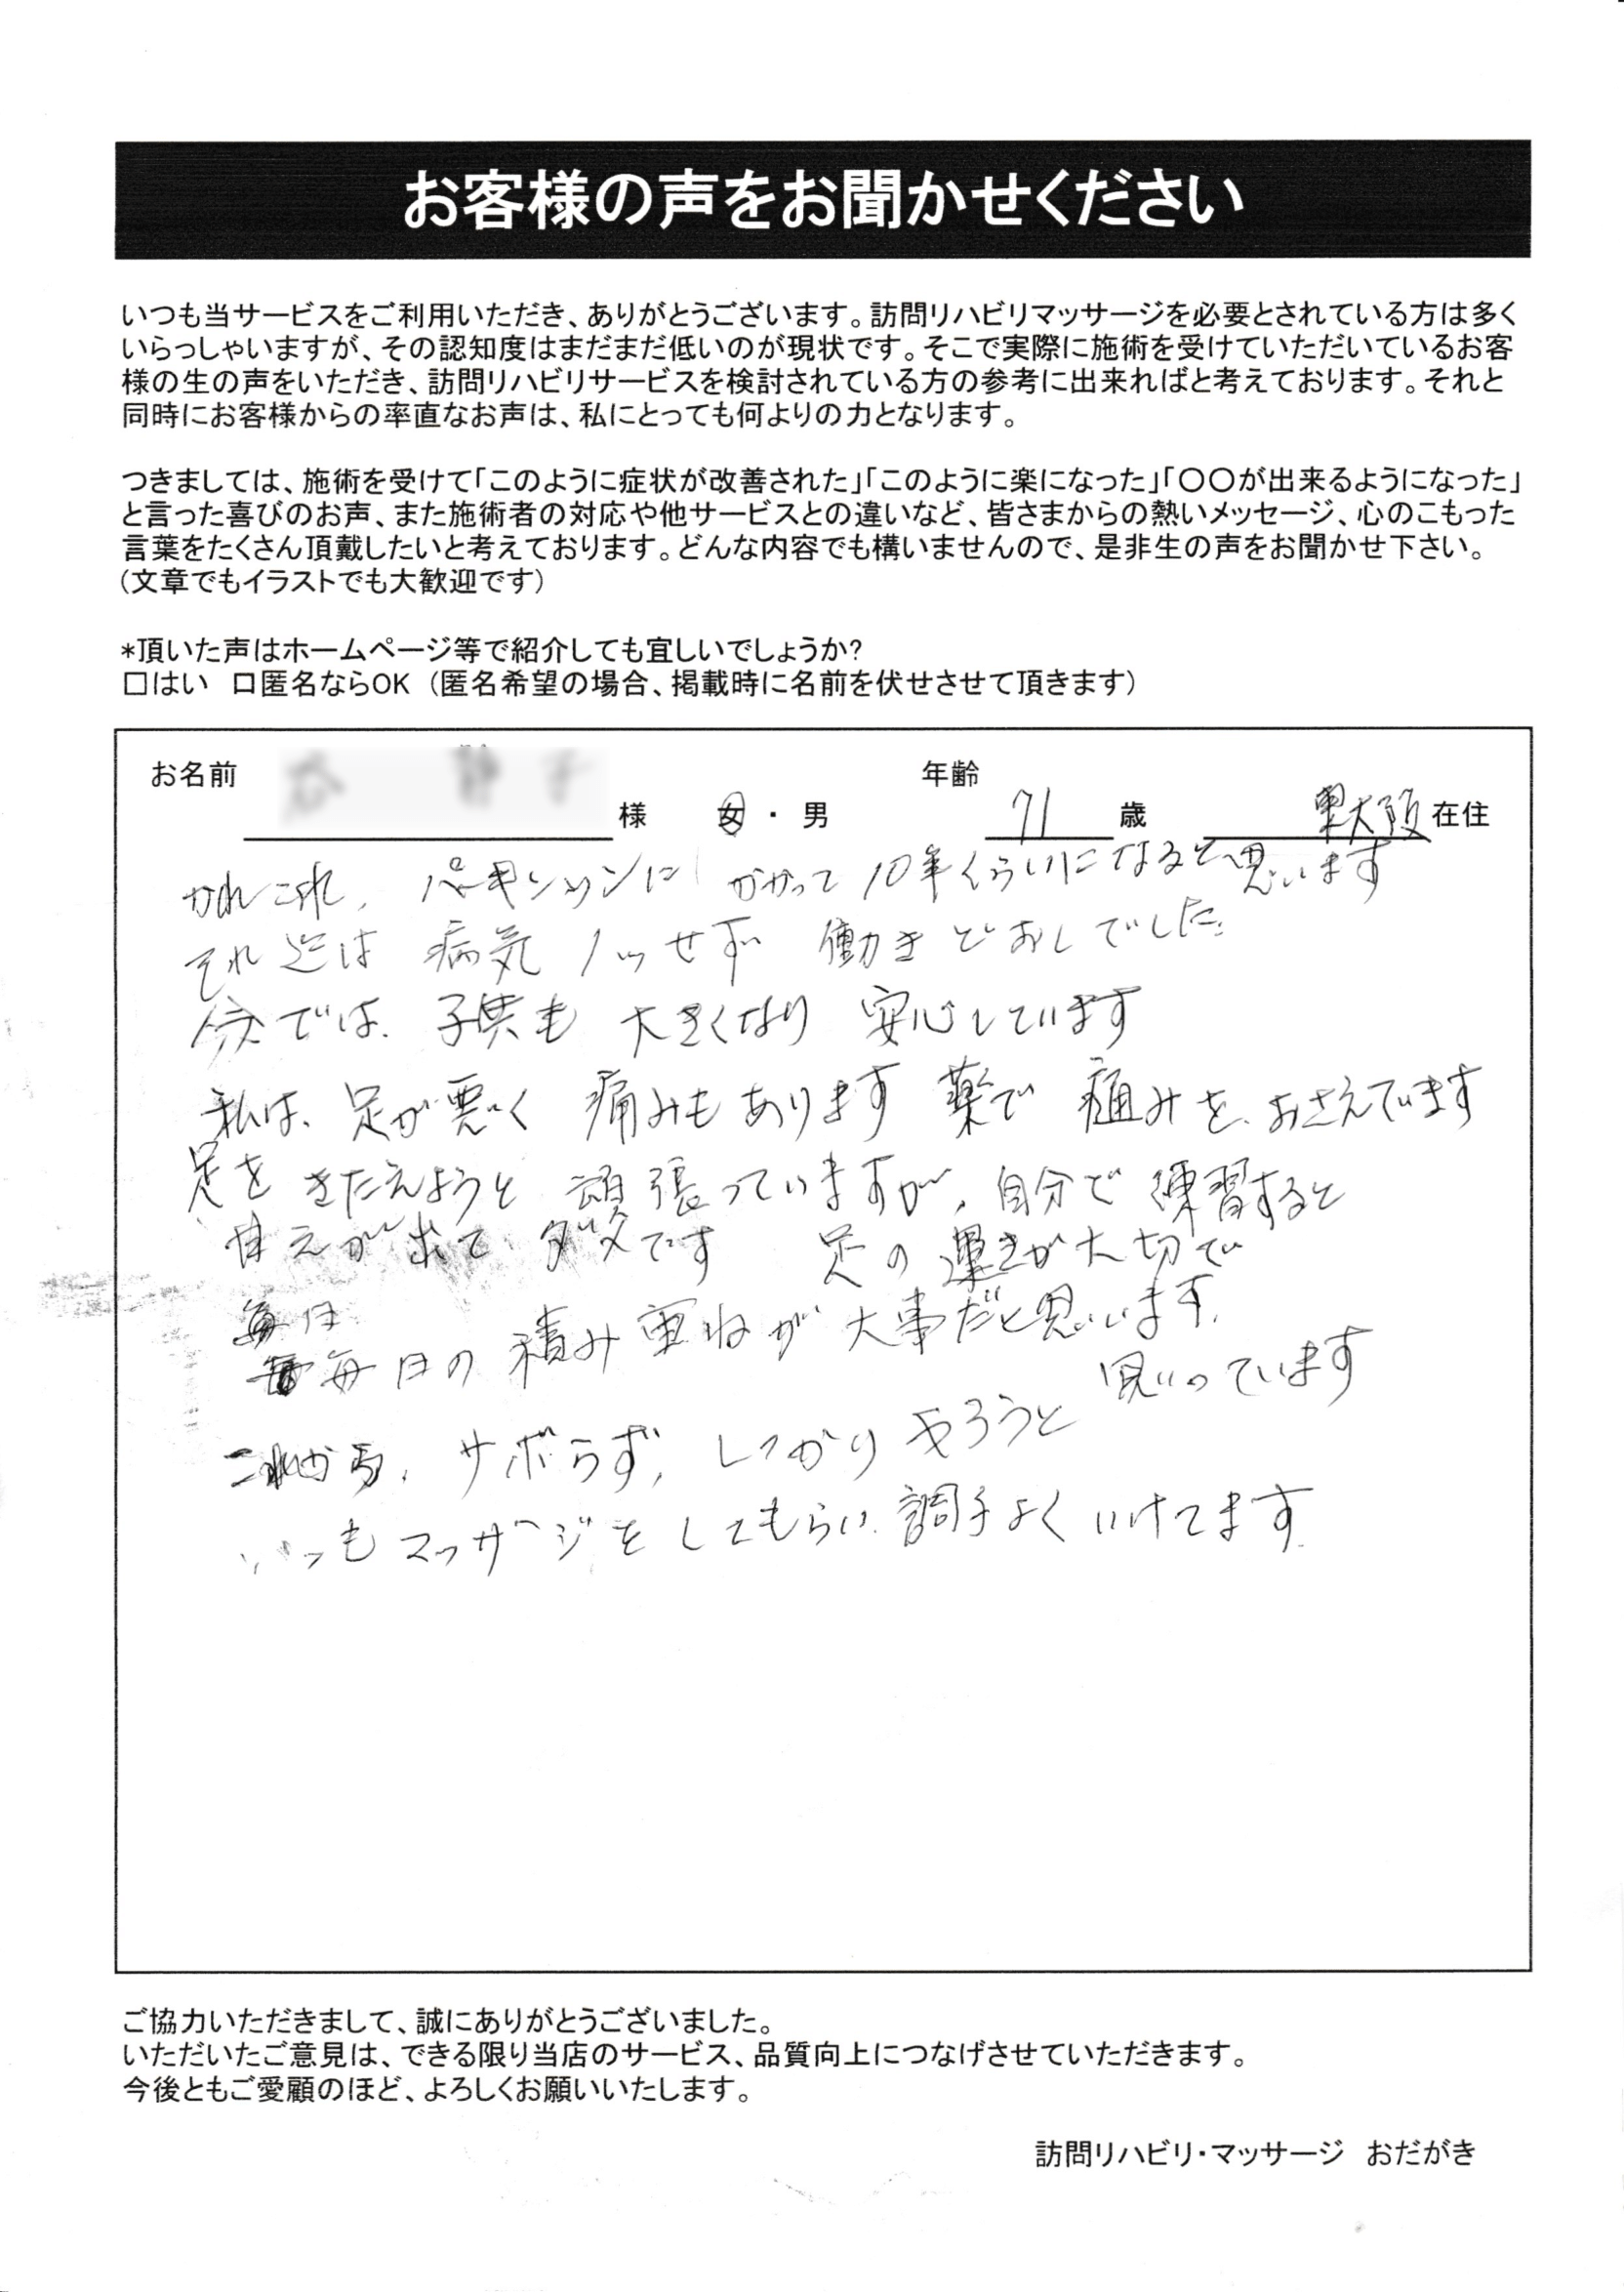 お客様の声をお聞かせください
いつも当サービスをご利用いただき、ありがとうございます。訪問リハビリマッサージを必要とされている方は多く
いらっしゃいますが、その認知度はまだまだ低いのが現状です。そこで実際に施術を受けていただいているお客
様の生の声をいただき、訪問リハビリサービスを検討されている方の参考に出来ればと考えております。それと
同時にお客様からの率直なお声は、私にとっても何よりの力となります。
つきましては、施術を受けて「このように症状が改善された」「このように楽になった」「〇〇が出来るようになった」
と言った喜びのお声、また施術者の対応や他サービスとの違いなど、皆さまからの熱いメッセージ、心のこもった
言葉をたくさん頂戴したいと考えております。どんな内容でも構いませんので、是非生の声をお聞かせ下さい。
（文章でもイラストでも大歓迎です）
*頂いた声はホームページ等で紹介しても宜しいでしょうか？
□はい　□匿名ならOK（匿名希望の場合、掲載時に名前を伏せさせて頂きます）
お名前　様　女・男　年齢　71歳　東大阪在住
かれこれ、パーキンソンにかかって10年くらいになると思います
それ迄は 病気ノッせず 働きどおしでした。
今では、子供も 大きくなり 安心しています
私は、足が悪く 痛みもあります 薬で 痛みを、おさえています
足を きたえようと 頑張っていますが、自分で 練習すると
甘えが出て ダメです　足の 運きが大切で
毎日
毎日の 積み重ねが 大事だと思います。
これから、サボらず、しっかりやろうと 思っています
いつもマッサージをしてもらい、調子よく いけてます。
ご協力いただきまして、誠にありがとうございました。
いただいたご意見は、できる限り当店のサービス、品質向上につなげさせていただきます。
今後ともご愛顧のほど、よろしくお願いいたします。
訪問リハビリ・マッサージ　おだがき